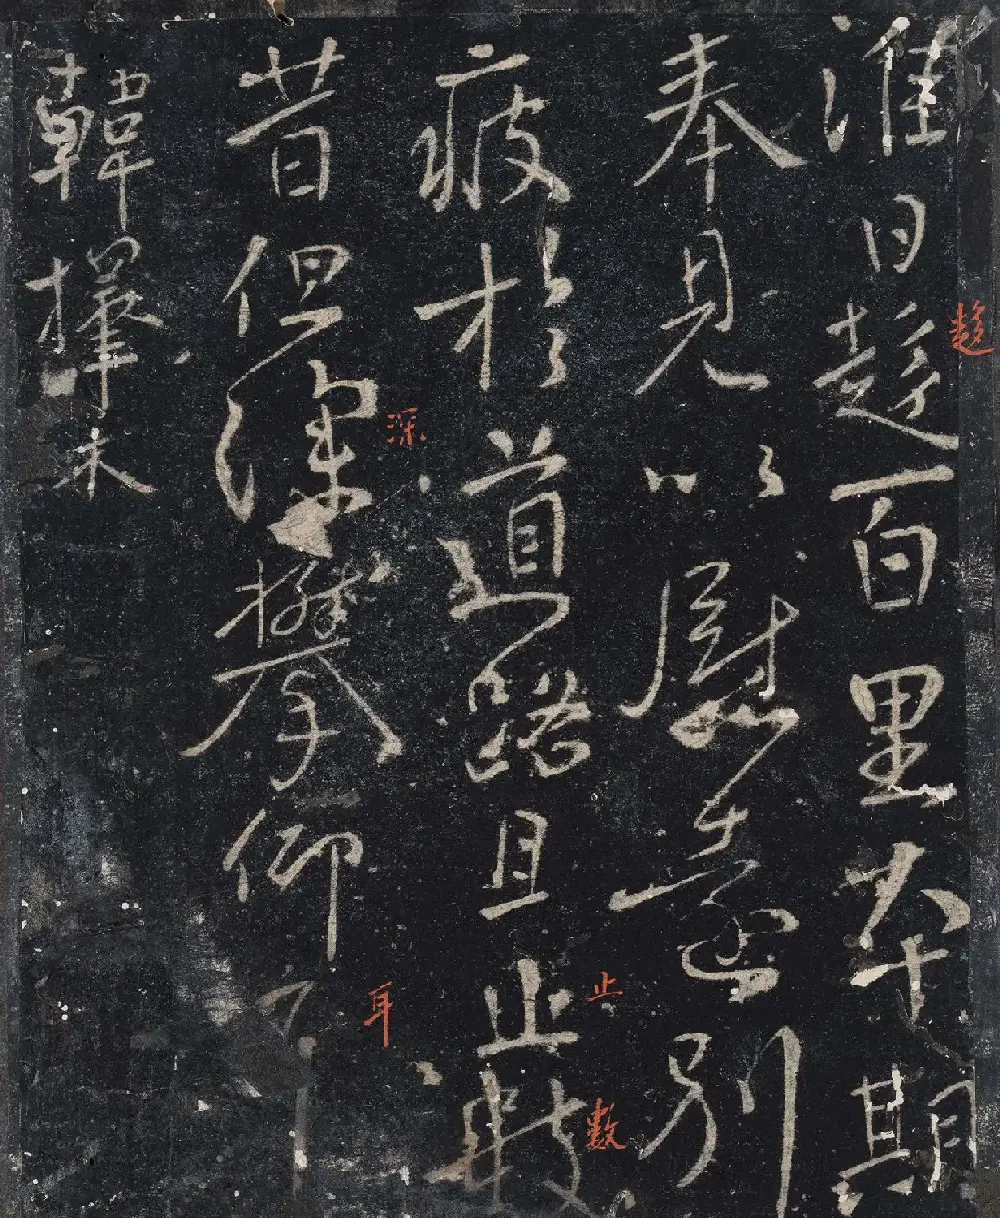 淮日趍百里卒期
趍
奉見以慰別
疲於道路且止數
止
數
昔但深攀仰耳
深
耳
韓擇木